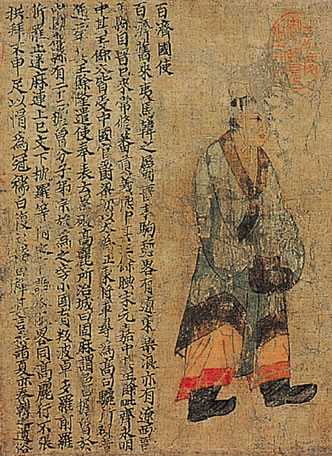 百濟國使
百濟舊來夷馬韓之屬晉末駒驪畧有遼東樂浪亦有遼西晉
平縣自晉已來常修蕃貢義熙中其王餘腆宋元嘉中其王餘毗齊永明
中其王餘太皆受中國官爵梁初以太爲征東將軍尋爲高句驪所破普
通二年其王餘隆遣使奉表云累破高麗所治城曰固麻謂邑檐魯於
中國郡縣有二十二檐魯分子弟宗族爲之旁小國有叛波卓多羅前羅
斯羅止迷麻連上己文下枕羅等附之言語衣服畧同高麗行不張
拱拜不申足以帽爲冠襦曰複衫袴曰褌其言參諸夏亦秦韓之遺俗